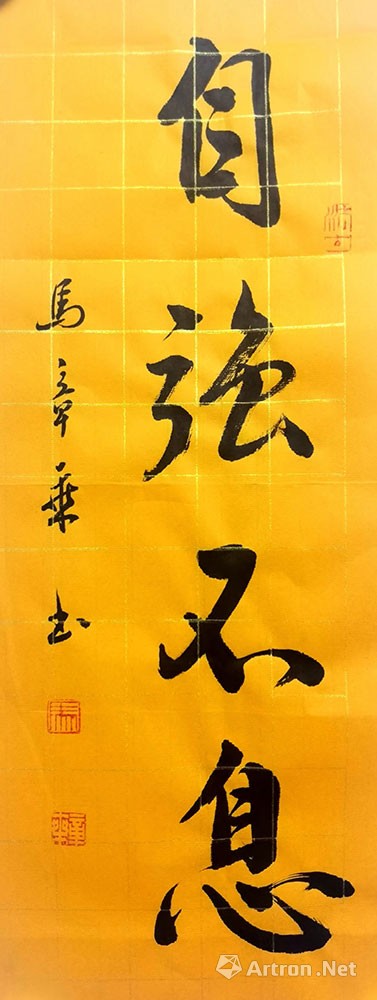 自強不息
馬章乘书
Artron.Net